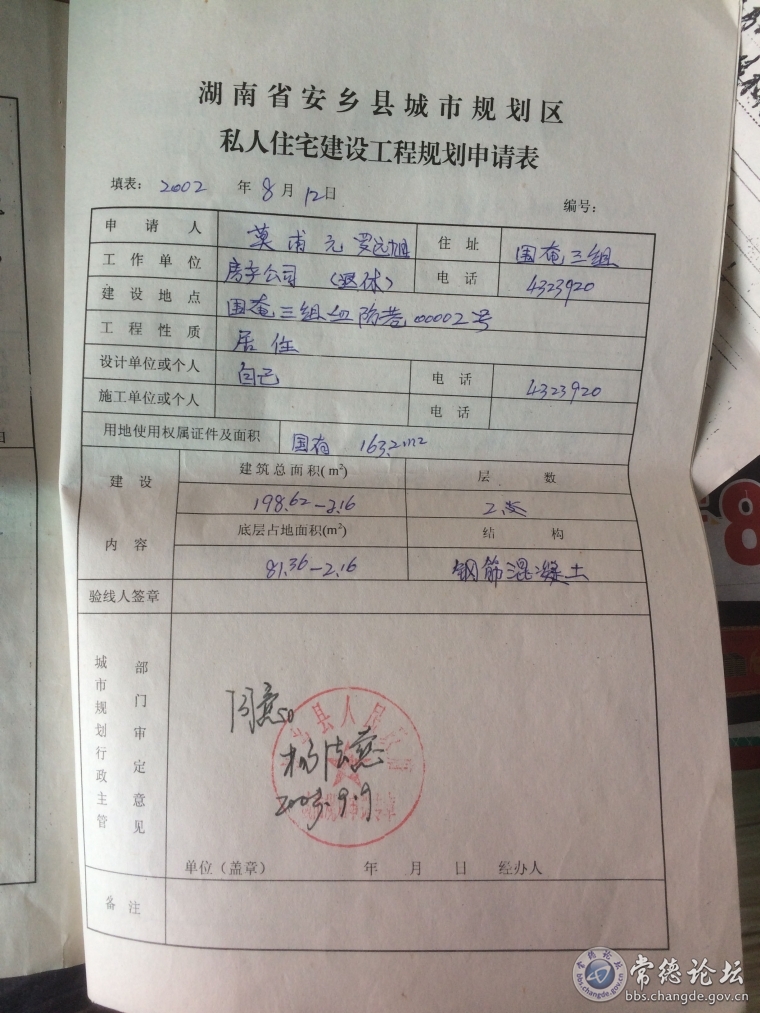 湖南省安乡县城市规划区
私人住宅建设工程规划申请表
填表: 2002 年 8 月 12 日
编号:
申请人 莫甫元 罗远旭 住址 围奄三组
工作单位 房产公司 (退休) 电话 4323920
建设地点 围奄三组血防巷00002号
工程性质 居住
设计单位或个人 自己 电话 4323920
施工单位或个人 电话
用地使用权属证件及面积 国有 163.2m2
建设内容
建筑总面积(m²) 层数
198.62-2.16 2
底层占地面积(m²) 结构
81.36-2.16 钢筋混凝土
验线人签章
城市规划行政主管部门审定意见
同意
县人民
2003.9.9
单位(盖章) 年 月 日 经办人
备注
常德论坛
bbs.changde.gov.cn
8